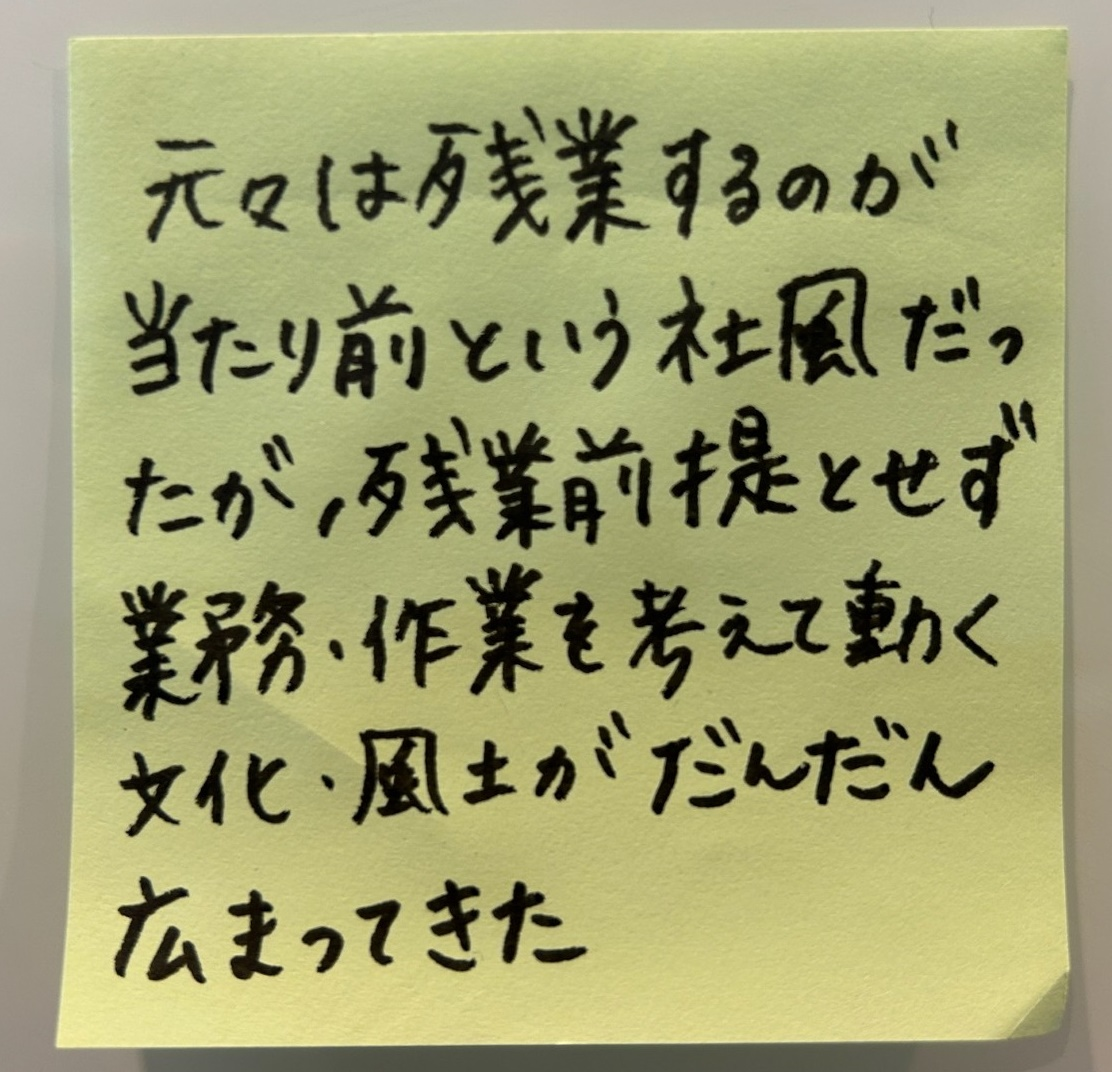 元々は残業するのが
当たり前という社風だっ
たが,残業前提とせず
業務・作業を考えて動く
文化・風土がだんだん
広まってきた